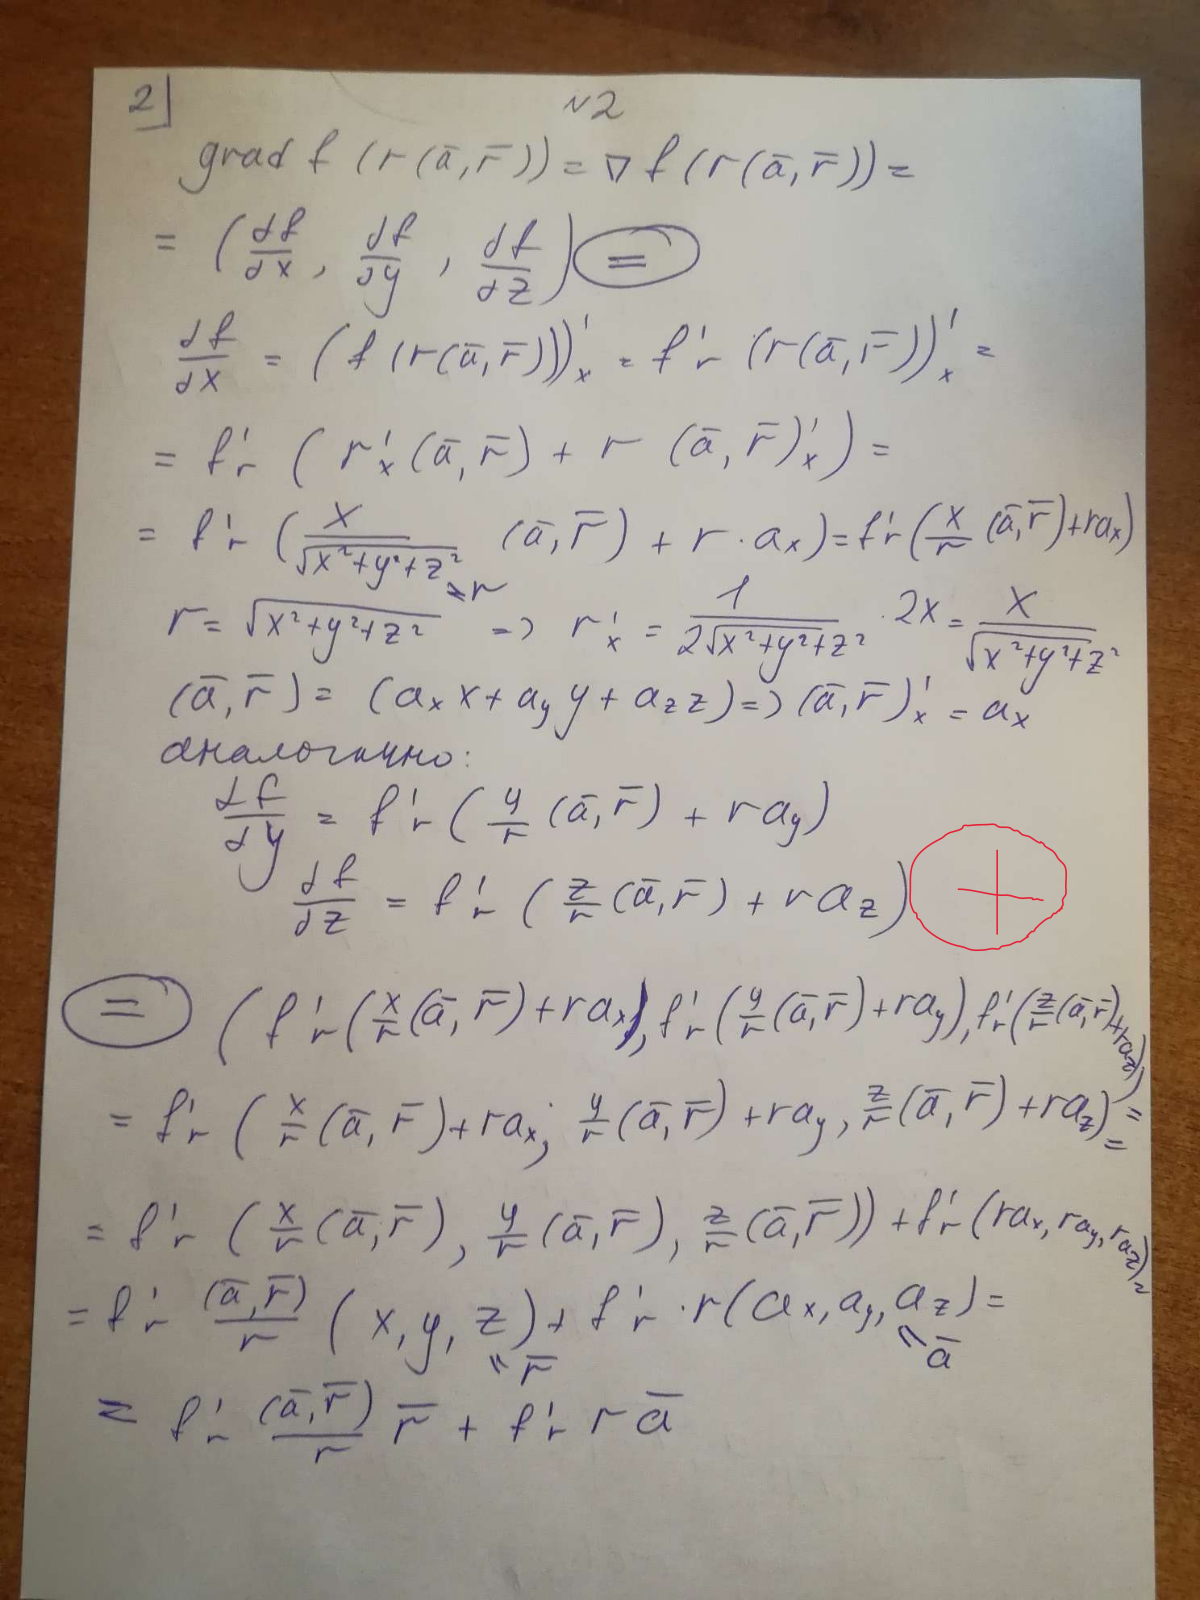 2]
№2
grad f (r(ā, r̄)) = ∇ f (r(ā, r̄)) =
= (df/dx, df/dy, df/dz) =
df/dx = (f (r(ā, r̄)))'ₓ = f'ᵣ (r(ā, r̄))'ₓ =
= f'ᵣ (r'ₓ(ā, r̄) + r (ā, r̄)'ₓ) =
= f'ᵣ (x/√(x²+y²+z²) (ā, r̄) + r · aₓ) = f'ᵣ (x/r (ā, r̄) + raₓ)
= r
r = √(x²+y²+z²) => r'ₓ = 1/(2√(x²+y²+z²)) · 2x = x/√(x²+y²+z²)
(ā, r̄) = (aₓ x + a_y y + a_z z) => (ā, r̄)'ₓ = aₓ
аналогично:
df/dy = f'ᵣ (y/r (ā, r̄) + ra_y)
df/dz = f'ᵣ (z/r (ā, r̄) + ra_z)
+
= (f'ᵣ (x/r (ā, r̄) + raₓ), f'ᵣ (y/r (ā, r̄) + ra_y), f'ᵣ (z/r (ā, r̄) + ra_z)) =
= f'ᵣ (x/r (ā, r̄) + raₓ; y/r (ā, r̄) + ra_y, z/r (ā, r̄) + ra_z) =
= f'ᵣ (x/r (ā, r̄), y/r (ā, r̄), z/r (ā, r̄)) + f'ᵣ (raₓ, ra_y, ra_z) =
= f'ᵣ (ā, r̄)/r (x, y, z) + f'ᵣ · r(aₓ, a_y, a_z) =
" r̄ " ā
= f'ᵣ (ā, r̄)/r r̄ + f'ᵣ r ā